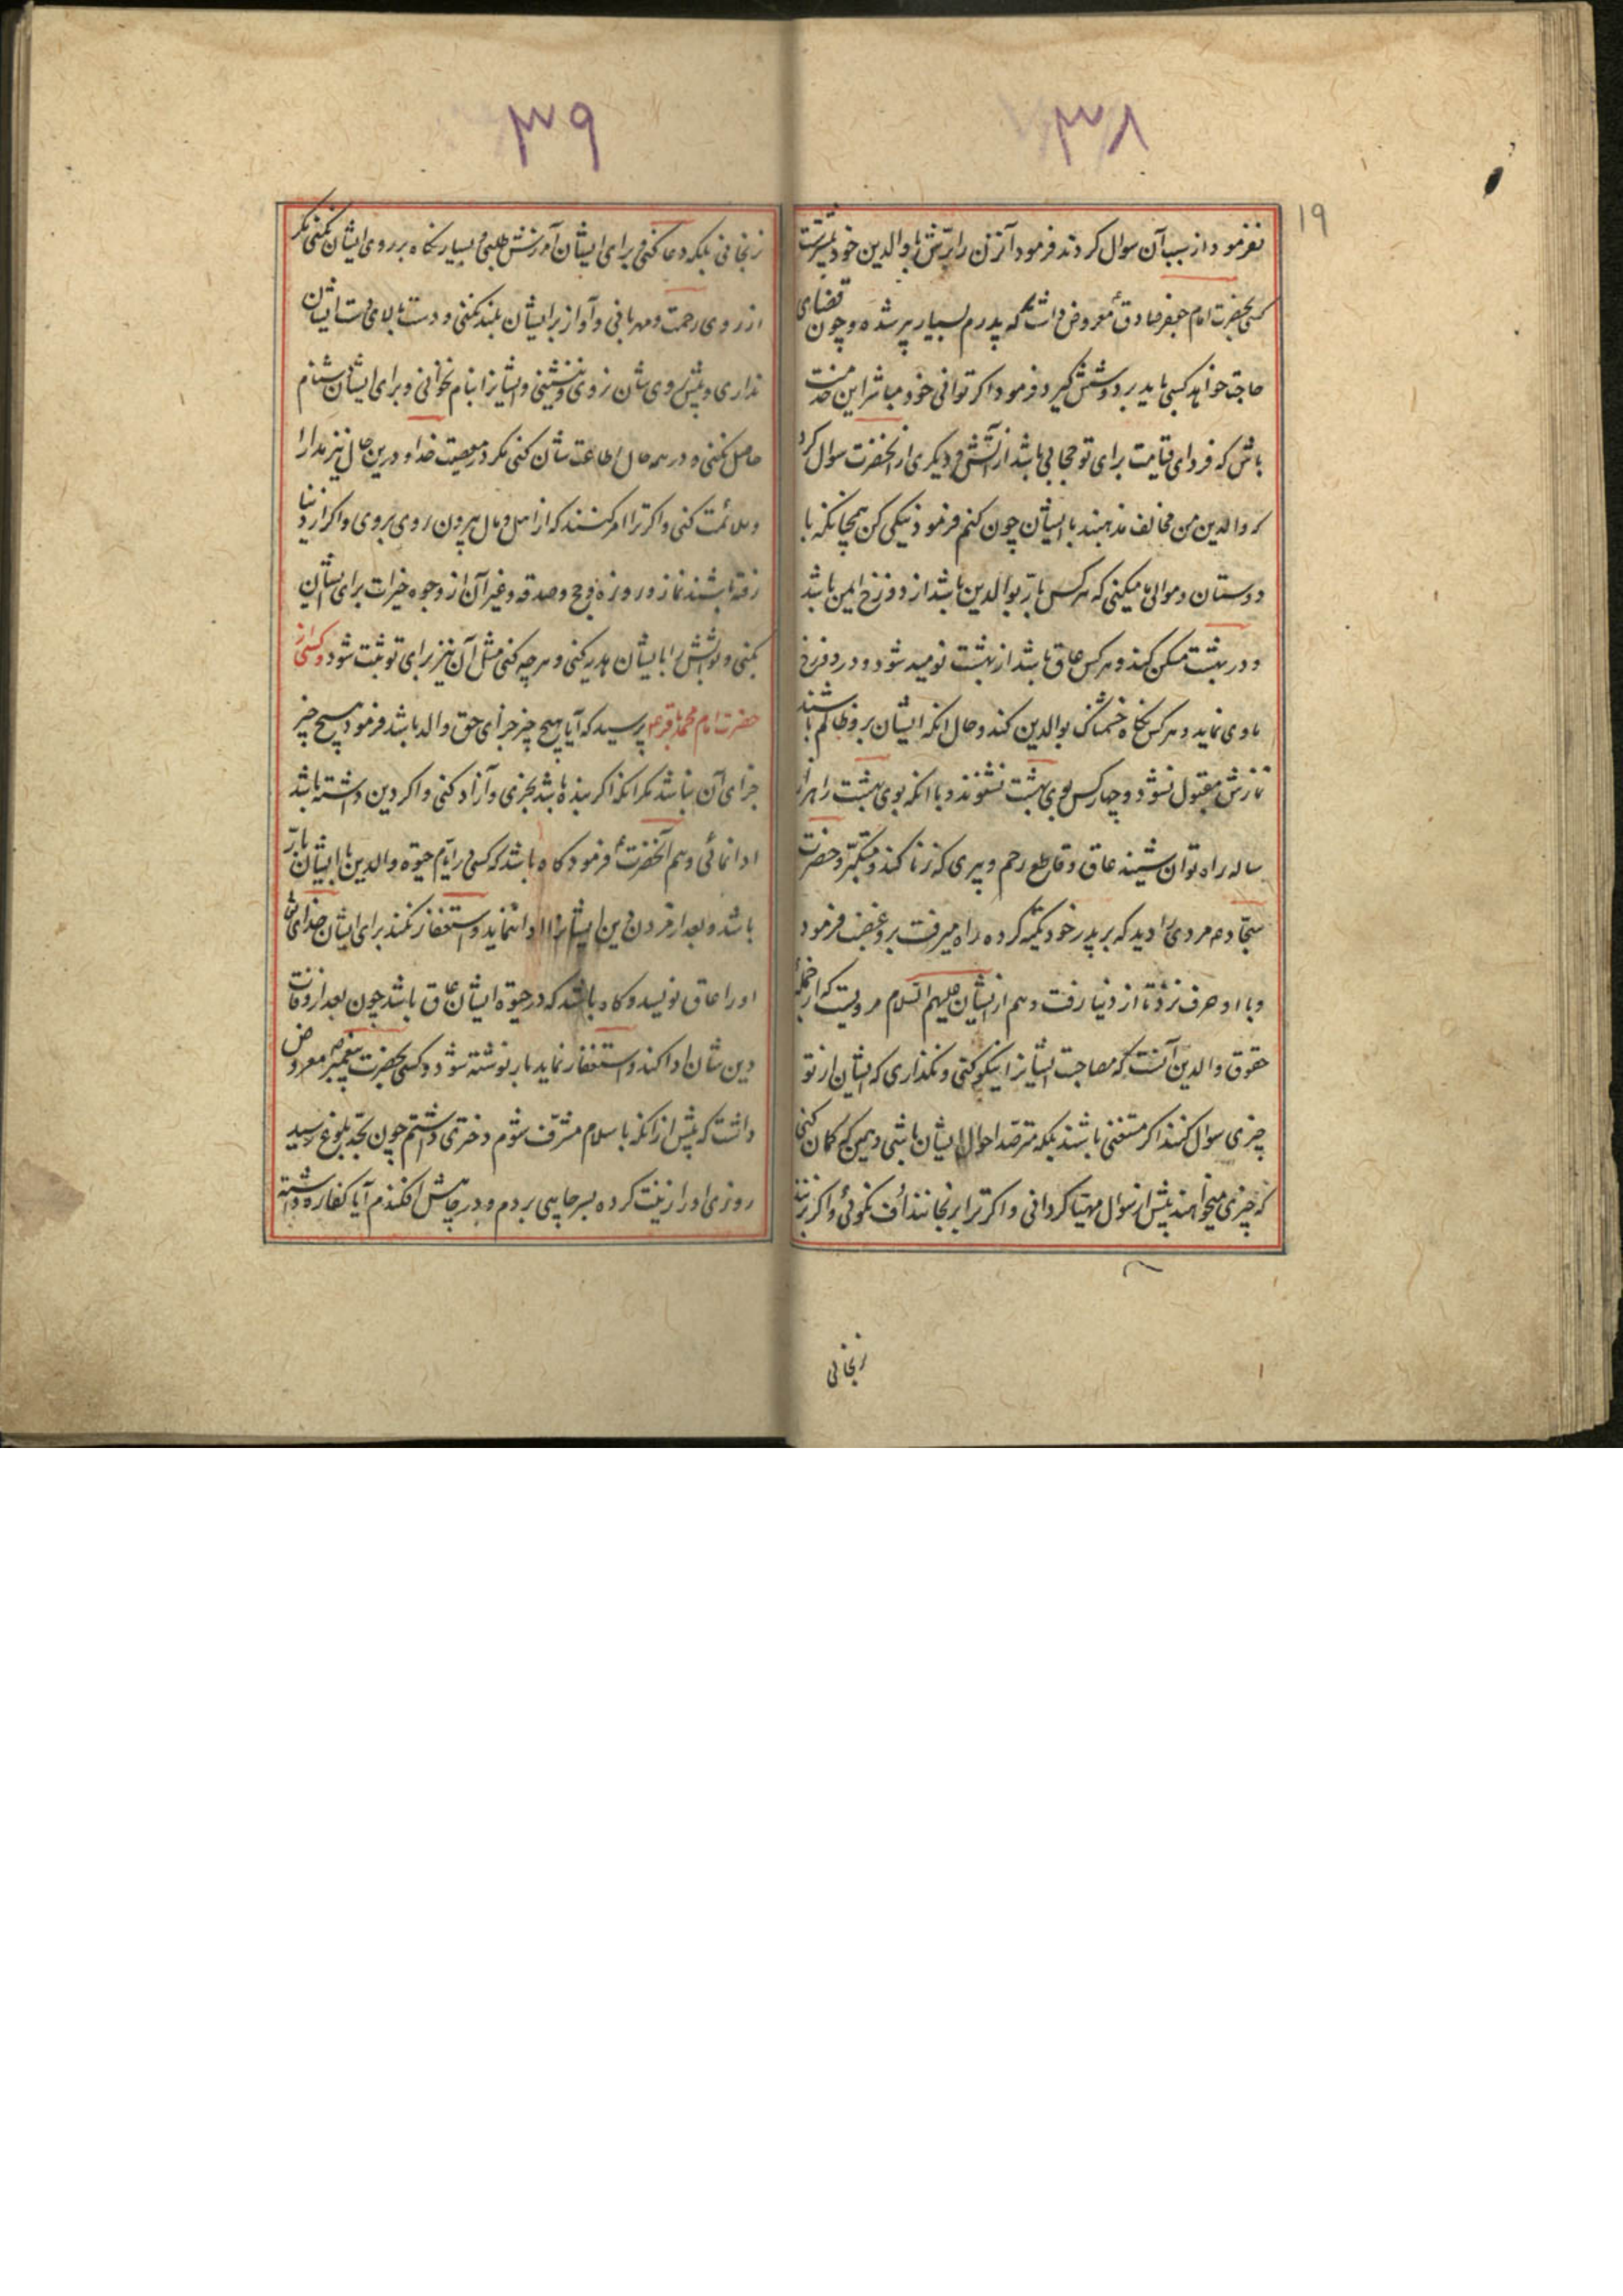 ۳۸
۱۹
نفرمود از سبب آن سوال کردند فرمود آنزن را برّش با والدین خود بیشترست
کسی بحضرت امام جعفر صادقؑ معروض داشت که پدرم بسیار پیر شده و چون قضای
حاجت خواهد کسی باید بر دوشش گیرد فرمود اگر توانی خود مباشر این خدمت
باش که فردای قیامت برای تو حجابی باشد از آتش و دیگری از انحضرت سوال کرد
که والدین من مخالف مذهبند با ایشان چون کنم فرمود نیکی کن همچنانکه با
دوستان و موالی ما میکنی که هر کس بارّ بوالدین باشد از دوزخ ایمن باشد
و در بهشت مسکن کند و هر کس عاق باشد از بهشت نومید شود و در دوزخ
ماوی نماید و هر کس نگاه خشمناک بوالدین کند و حال انکه ایشان برو ظالم باشند
نمازش مقبول نشود و چهار کس بوی بهشت نشنوند و با انکه بوی بهشت را هزار
ساله راه توان شنید عاق و قاطع رحم و پیری که زنا کند و متکبّر و حضرت
سجاد ع مردی را دید که بر پدر خود تکیه کرده راه میرفت برو غضب فرمود
و با او حرف نزد تا از دنیا رفت و هم از ایشان علیهم السلام مرویست که از جملهٔ
حقوق والدین آنست که مصاحبت ایشانرا نیکو کنی و نگذاری که ایشان از تو
چیزی سوال کنند اگر مستغنی باشند بلکه مترصّد احوال ایشان باشی و همین که گمان کنی
که چیزی میخواهند پیش از سؤال مهیّا گردانی و اگر ترا برنجانند اُف نگوئی و اگر بزنند
رنجانی
۳۹
رنجانی بلکه دعا کنی و برای ایشان آمرزش طلبی و بسیار نگاه بر روی ایشان نکنی مگر
از روی رحمت و مهربانی و آواز بر ایشان بلند نکنی و دست بالای دست ایشان
نداری و پیش روی شان نروی و ننشینی و ایشانرا بنام نخوانی و برای ایشان دشنام
حاصل نکنی و در همه حال اطاعت شان کنی مگر در معصیت خدا و درین حال نیز مدارا
و ملائمت کنی و اگر ترا امر کنند که از اهل و مال بیرون روی بروی و اگر از دنیا
رفته باشند نماز و روزه و حج و صدقه و غیر آن از وجوه خیرات برای ایشان
بکنی و ثوابش را بایشان هدیه کنی و هر چه کنی مثل آن نیز برای تو ثبت شود و کسی از
حضرت امام محمد باقر ع پرسید که آیا هیچ چیز جزای حق والد باشد فرمود هیچ چیز
جزای آن نباشد مگر انکه اگر بنده باشد بخری و آزاد کنی و اگر دین داشته باشد
ادا نمائی و هم آنحضرتؑ فرمود گاه باشد که کسی در ایّام حیوة والدین با ایشان بارّ
باشد و بعد از مردن دین ایشانرا ادا ننماید و استغفار نکند برای ایشان خدای تعالی
او را عاق نویسد و گاه باشد که در حیوة ایشان عاق باشد چون بعد از وفات
دین شان ادا کند و استغفار نماید بار نوشته شود و کسی بحضرت پیغمبر ص معروض
داشت که پیش از انکه باسلام مشرّف شوم دختری داشتم چون بحدّ بلوغ رسید
روزی او را زینت کرده بسر چاهی بردم و در چاهش افکندم آیا کفاره داشته